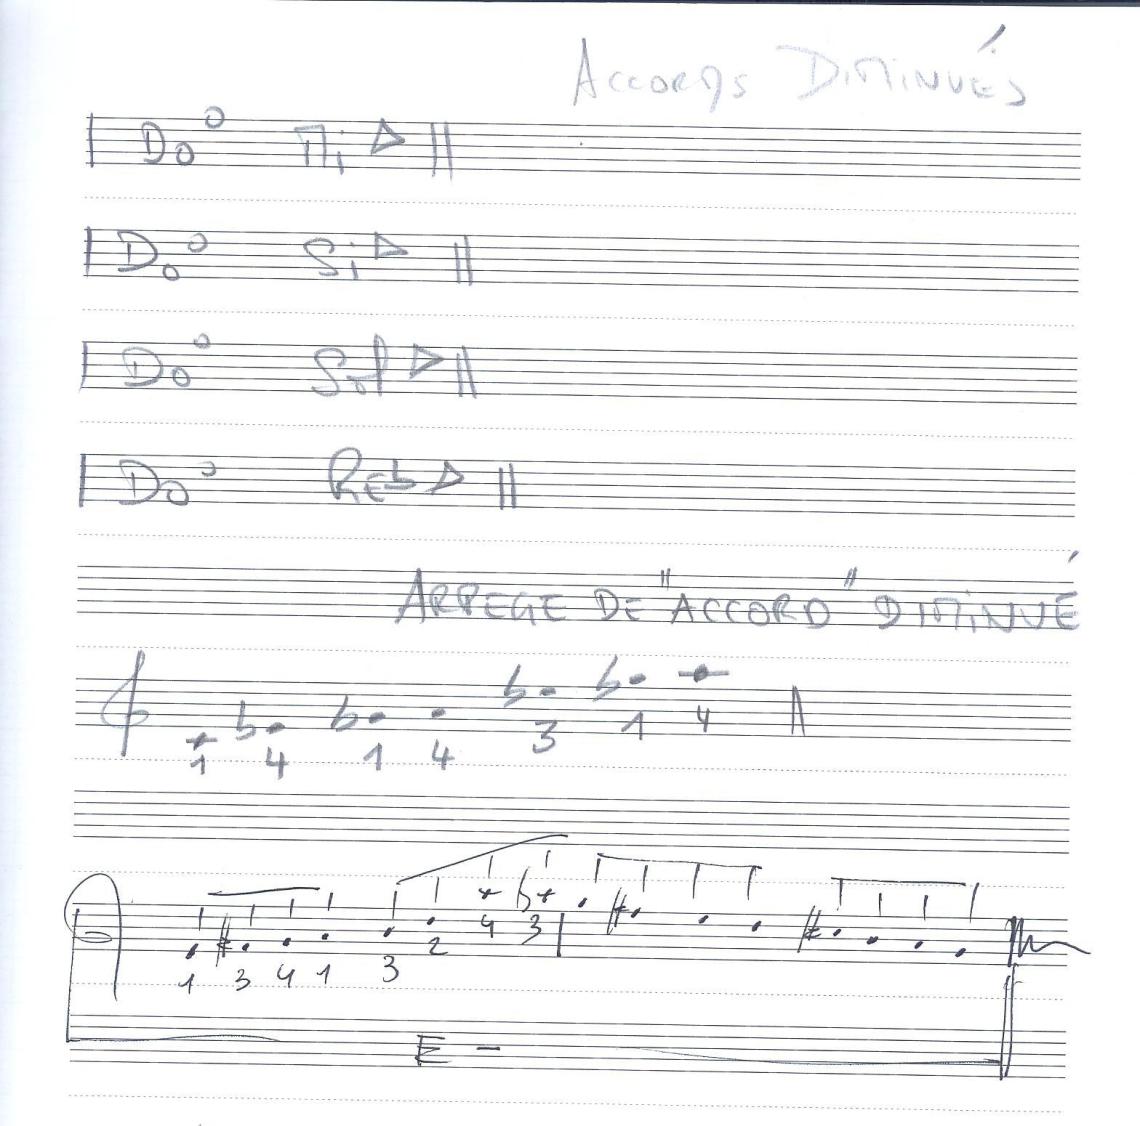 ACCORDS DIMINUÉS
Do° Mi △
Do° Si △
Do° Sol △
Do° REb △
ARPEGE DE "ACCORD" DIMINUÉ
♭ ♭ ♭ ♭
1 4 1 4 3 1 4
# ♭ # #
1 3 4 1 3 2 4 3
E -